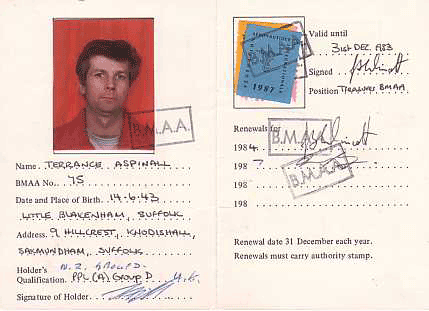 B.M.A.A.
Name. TERRANCE ASPINALL
BMAA No. 75
Date and Place of Birth. 14-6.43
LITTLE BLAKENHAM, SUFFOLK
Address. 9 HILLCREST, KNODISHALL,
SAXMUNDHAM, SUFFOLK
Holder's N.Z. GROUP D.
Qualification. PPL (A) GROUP D U.K.
Signature of Holder
FEDERATION AERONAUTIQUE INTERNATIONALE
B.M.A.A.
1987
Valid until
31st DEC. 1983
Signed
Position TREASURER BMAA
Renewals for
B.M.A.A.
198 4
198 7
198
B.M.A.A.
198
Renewal date 31 December each year.
Renewals must carry authority stamp.